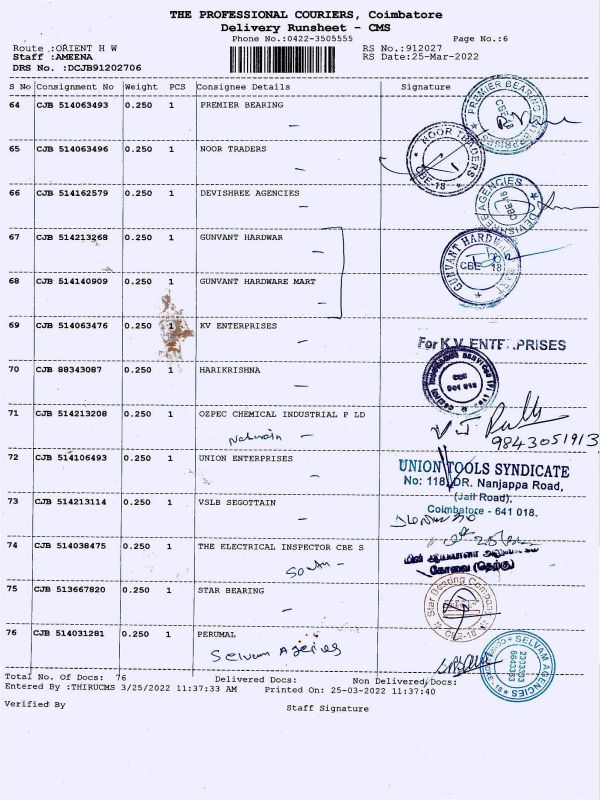 THE PROFESSIONAL COURIERS, Coimbatore
Delivery Runsheet - CMS
Phone No.:0422-3505555 Page No.:6
Route :ORIENT H W RS No.:912027
Staff :AMEENA RS Date:25-Mar-2022
DRS No. :DCJB91202706
S No Consignment No Weight PCS Consignee Details Signature
64 CJB 514063493 0.250 1 PREMIER BEARING
PREMIER BEARING
65 CJB 514063496 0.250 1 NOOR TRADERS
NOOR TRADERS
CBE-18
66 CJB 514162579 0.250 1 DEVISHREE AGENCIES
DEVISHREE AGENCIES
67 CJB 514213268 0.250 1 GUNVANT HARDWAR
GUNVANT HARDWARE MART
CBE 18
68 CJB 514140909 0.250 1 GUNVANT HARDWARE MART
69 CJB 514063476 0.250 1 KV ENTERPRISES
For K.V. ENTERPRISES
70 CJB 88343087 0.250 1 HARIKRISHNA
71 CJB 514213208 0.250 1 OZPEC CHEMICAL INDUSTRIAL P LD
9843051913
72 CJB 514106493 0.250 1 UNION ENTERPRISES
UNION TOOLS SYNDICATE
No: 118, DR. Nanjappa Road,
(Jail Road),
Coimbatore - 641 018.
73 CJB 514213114 0.250 1 VSLB SEGOTTAIN
74 CJB 514038475 0.250 1 THE ELECTRICAL INSPECTOR CBE S
South
கோவை (தெற்கு)
75 CJB 513667820 0.250 1 STAR BEARING
Star Bearing Company
CBE-18
76 CJB 514031281 0.250 1 PERUMAL
Selvam Agencies
SELVAM AGENCIES
2303383
6643383
CBE-18
Total No. Of Docs: 76 Delivered Docs: Non Delivered Docs:
Entered By :THIRUCMS 3/25/2022 11:37:33 AM Printed On: 25-03-2022 11:37:40
Verified By Staff Signature